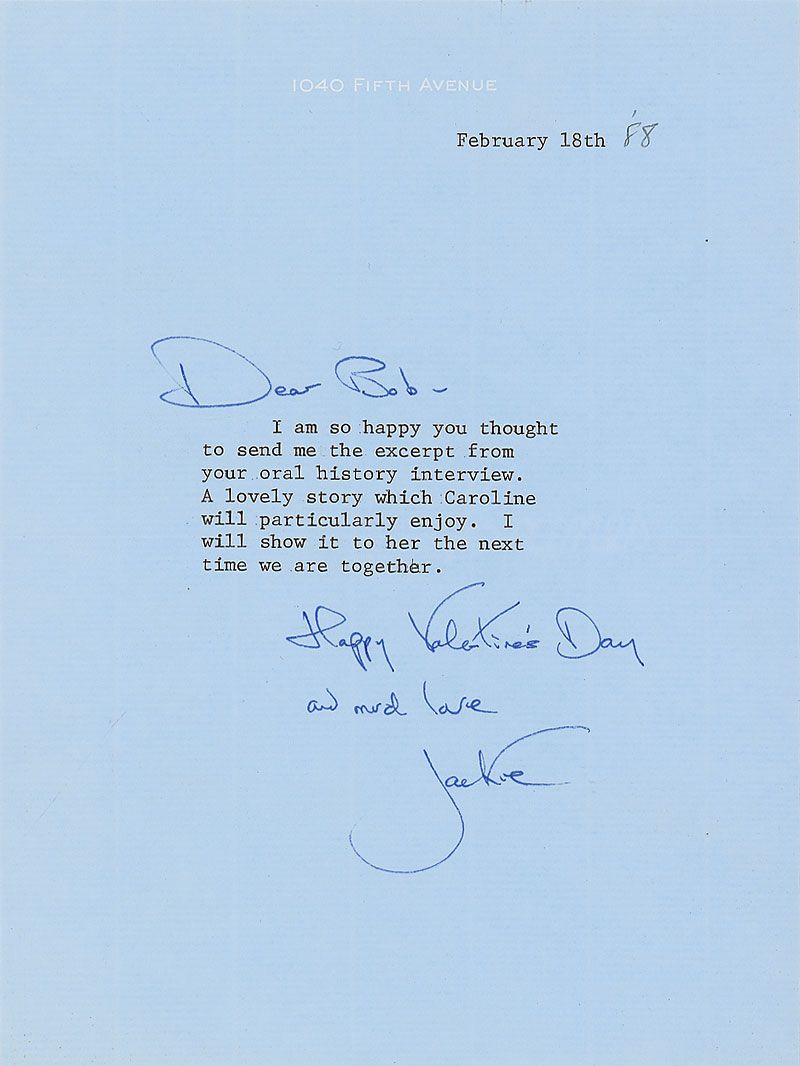 1040 FIFTH AVENUE
February 18th '88
Dear Bob –
I am so happy you thought
to send me the excerpt from
your oral history interview.
A lovely story which Caroline
will particularly enjoy. I
will show it to her the next
time we are together.
Happy Valentine's Day
and much love
Jackie